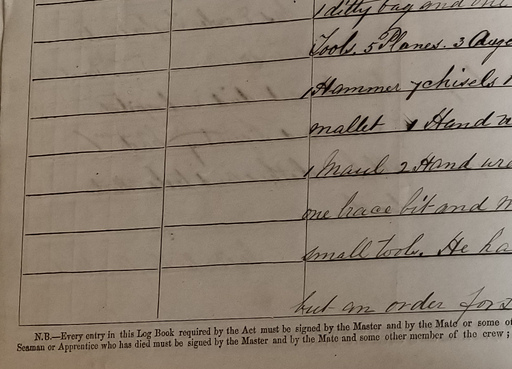 1 ditty bag and one
Tools. 5 Planes. 3 Auge
1 Hammer 7 chisels
mallet 1 Hand
1 Maul 2 Hand
one brace bit and
small tools. He ha
but an order for
N.B.—Every entry in this Log Book required by the Act must be signed by the Master and by the Mate or some ot
Seaman or Apprentice who has died must be signed by the Master and by the Mate and some other member of the crew;